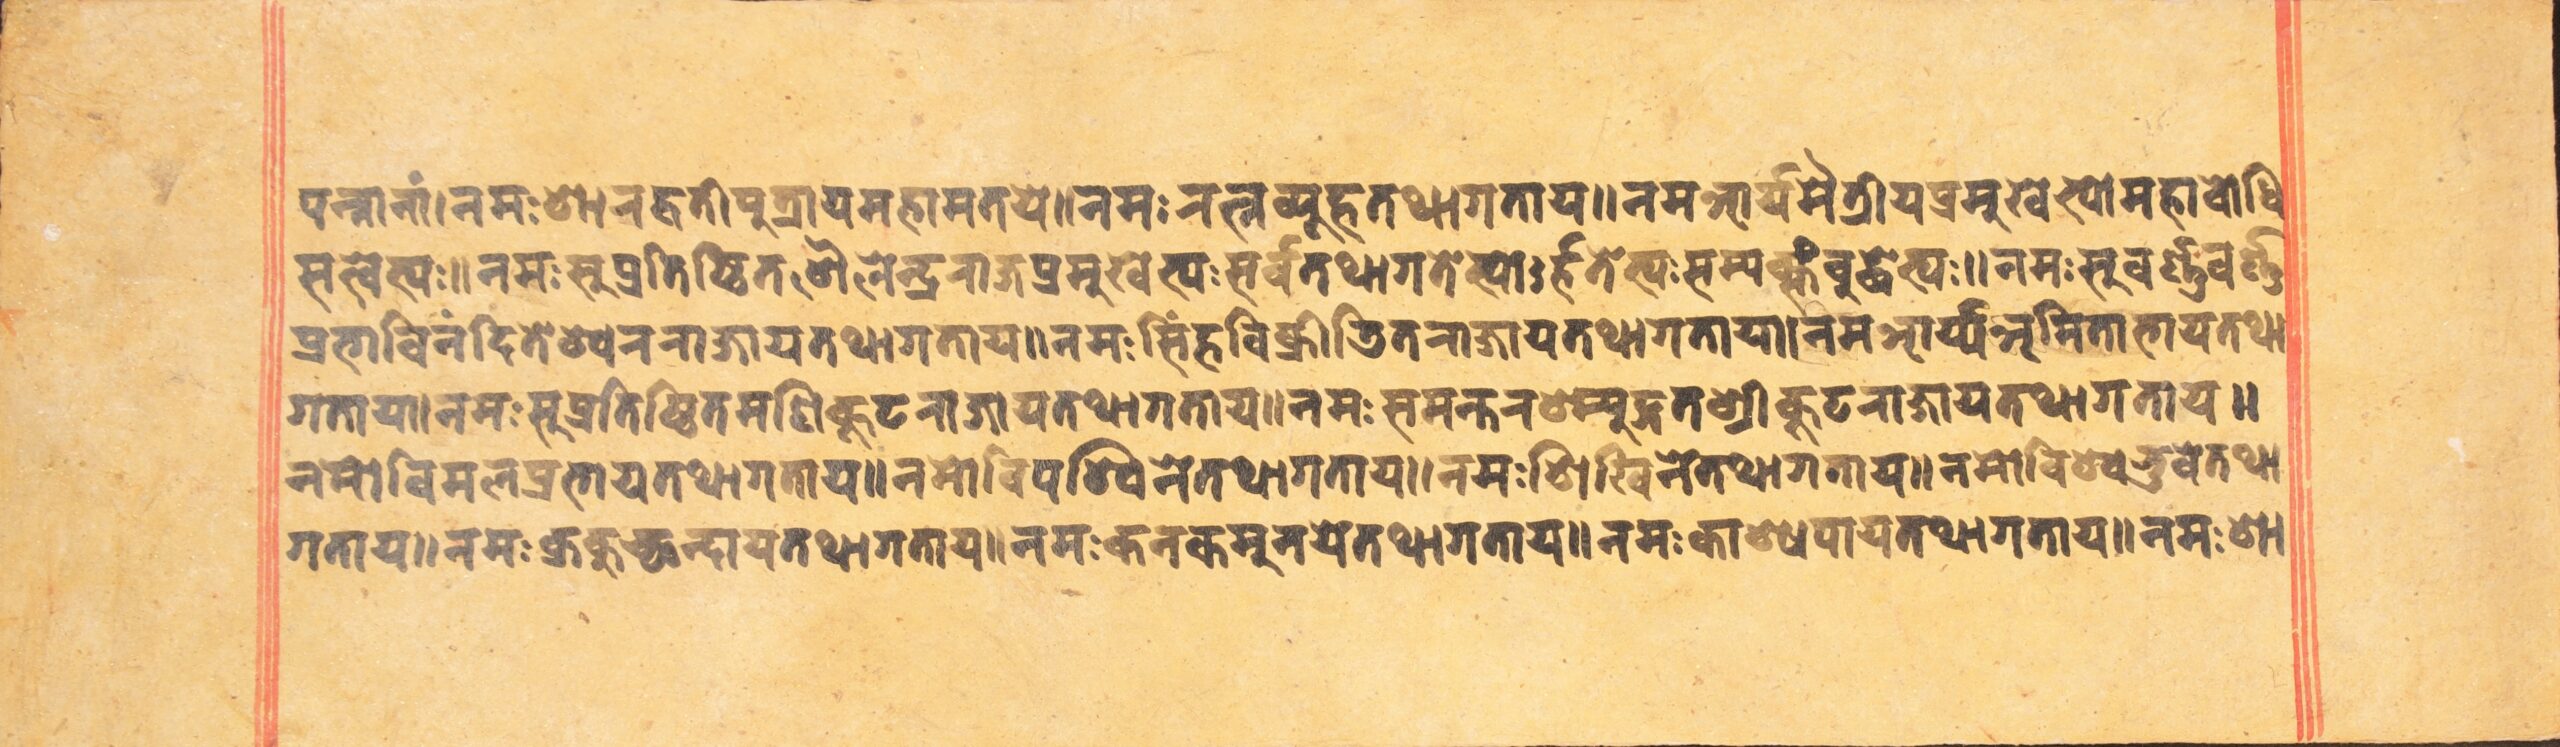 पन्नानां।नमःशारद्वतीपुत्रायमहामतये॥नमःरत्नव्यूहतथागताय॥नमआर्यमैत्रीयप्रमुखेभ्योमहाबोधि
सत्वेभ्यः॥नमःसुप्रतिष्ठितशैलेन्द्रराजप्रमुखेभ्यःसर्वतथागतेभ्योऽर्हतेभ्यःसम्यक्संबुद्धेभ्यः॥नमःसुवर्ण्णवर्ण्ण
प्रभाविनंदितेश्वरराजायतथागताय॥नमःसिंहविक्रीडितराजायतथागताय॥नमआर्य्यअमिताभायतथा
गताय॥नमःसुप्रतिष्ठितमणिकूटराजायतथागताय॥नमःसमन्तरश्म्युद्गतश्रीकूटराजायतथागताय॥
नमोविमलप्रभायतथागताय॥नमोविपश्विनेतथागताय॥नमःशिखिनेतथागताय॥नमोविश्वभुवेतथा
गताय॥नमःक्रकुच्छन्दायतथागताय॥नमःकनकमुनयेतथागताय॥नमःकाश्यपायतथागताय॥नमःशा